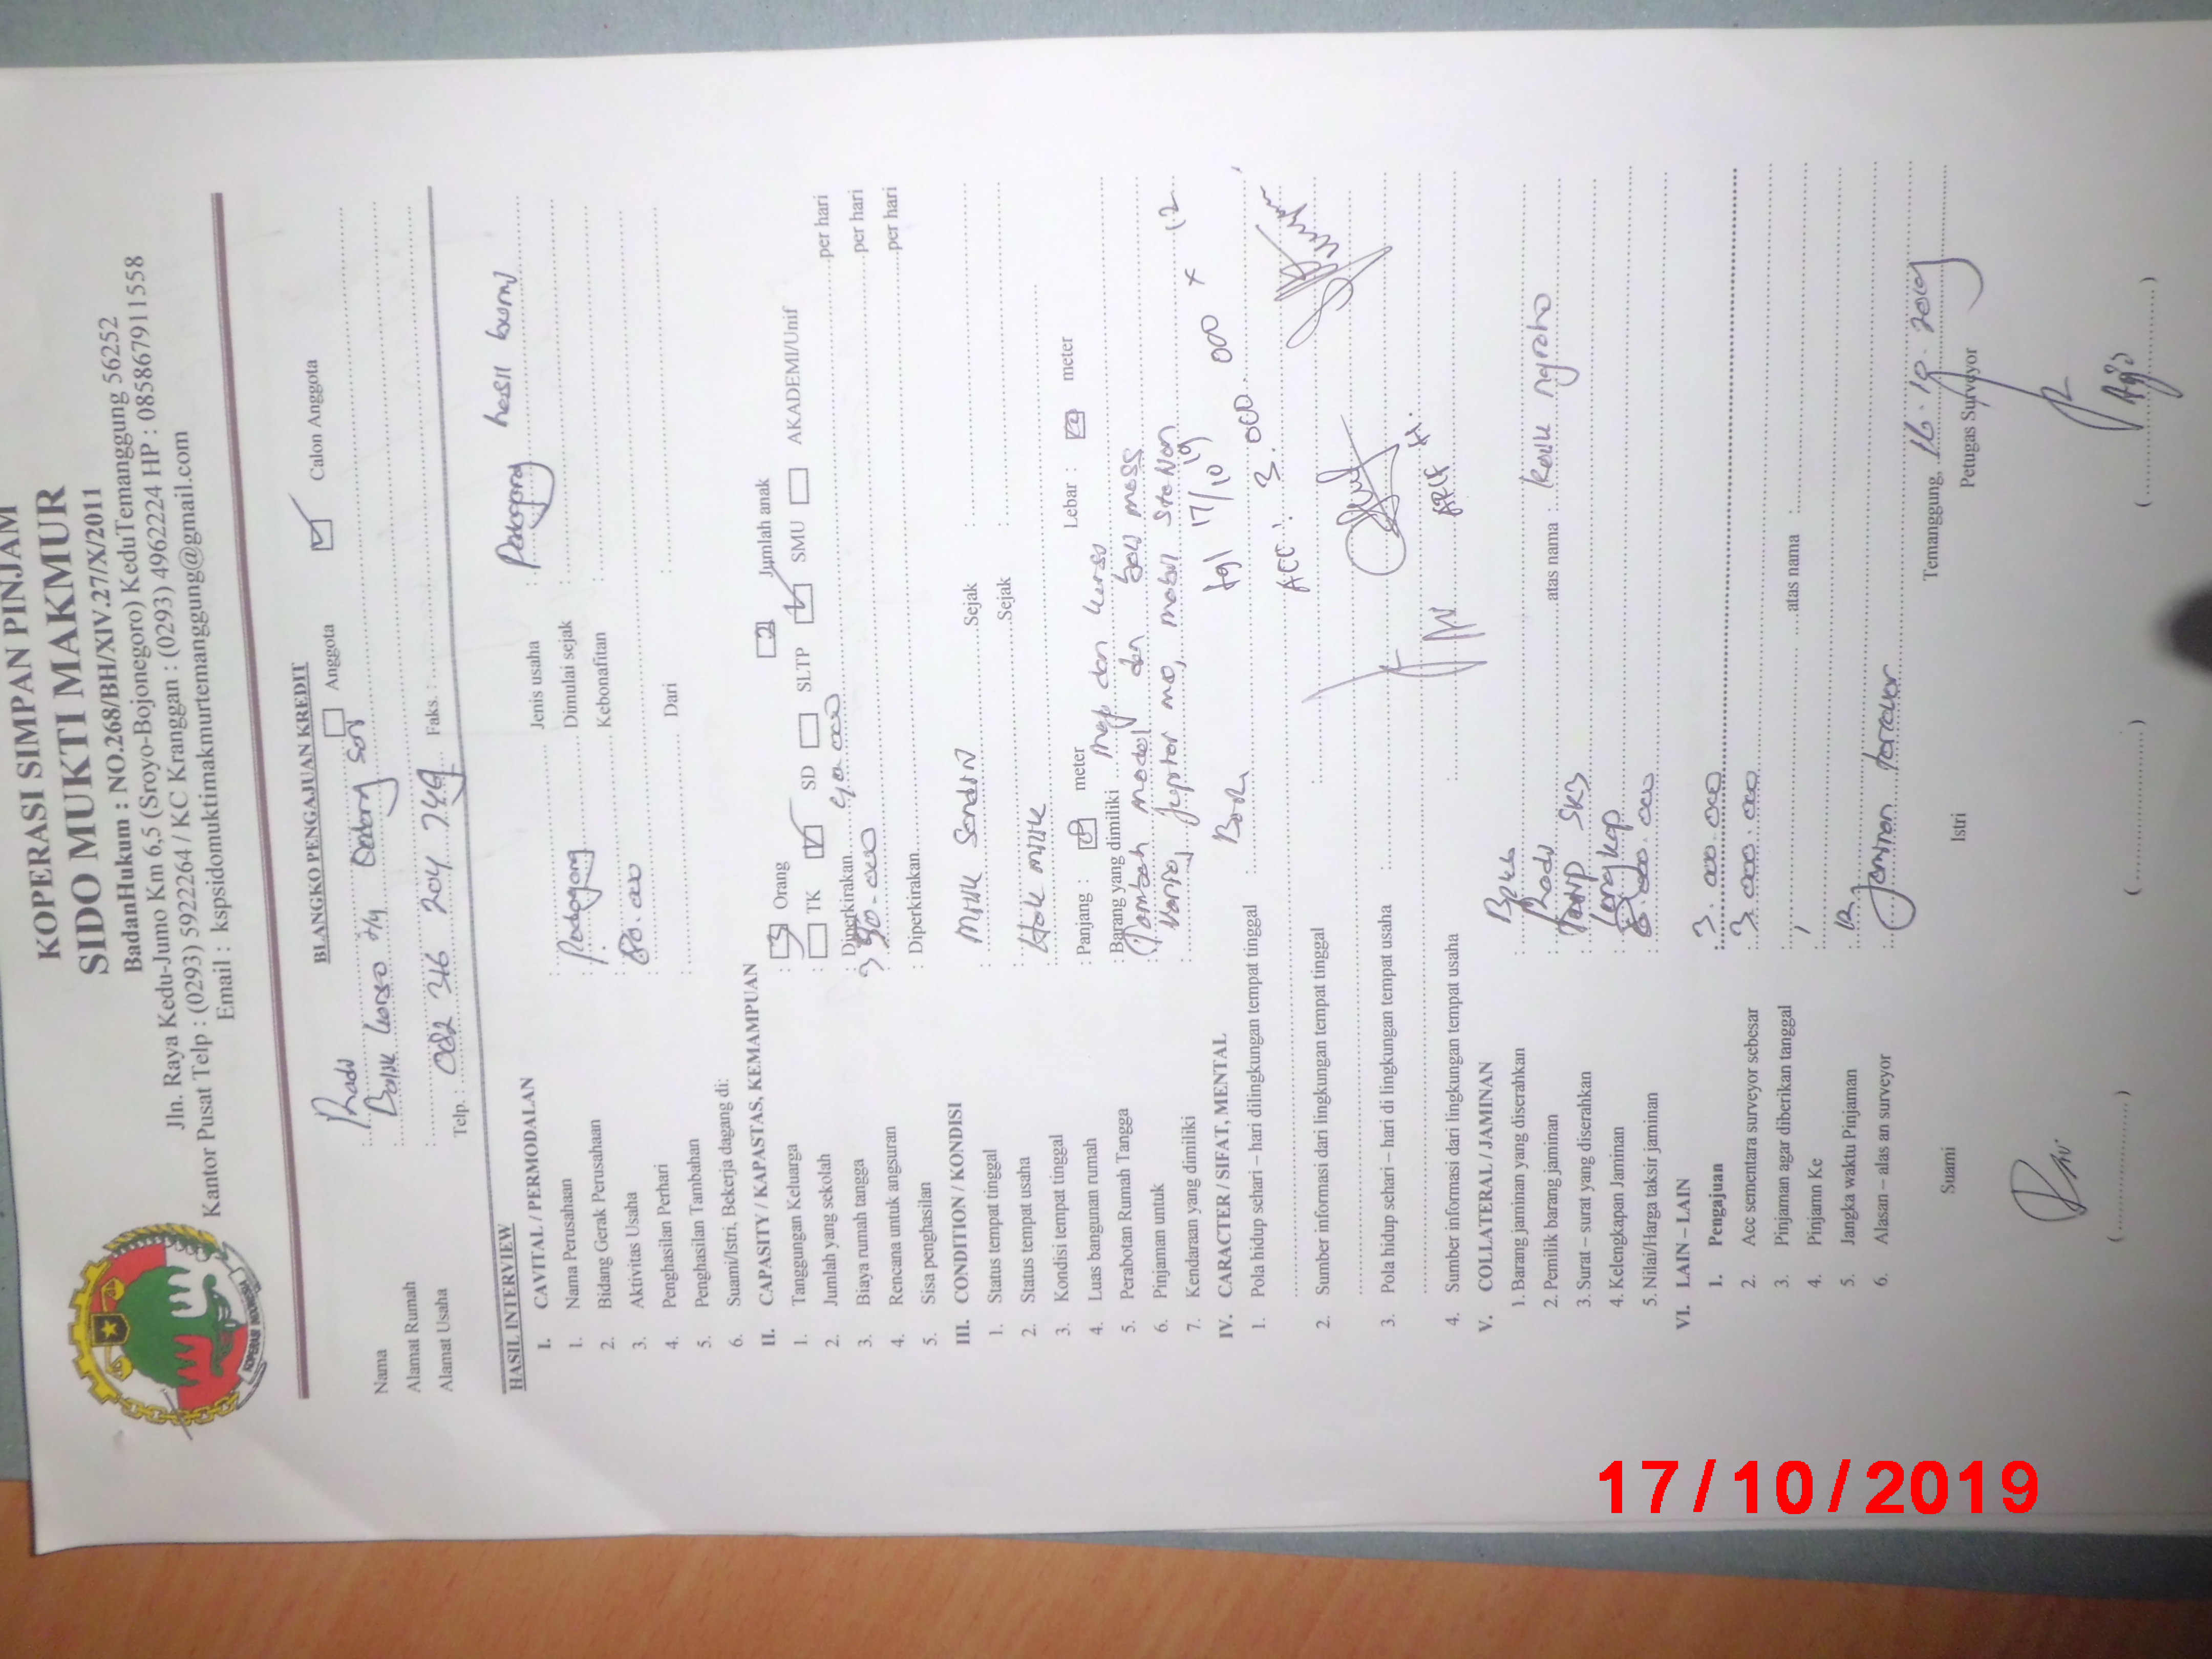 KOPERASI SIMPAN PINJAM
SIDO MUKTI MAKMUR
BadanHukum : NO.268/BH/XIV.27/X/2011
Jln. Raya Kedu-Jumo Km 6,5 (Sroyo-Bojonegoro) KeduTemanggung 56252
Kantor Pusat Telp : (0293) 5922264 / KC Kranggan : (0293) 4962224 HP : 085867911558
Email : kspsidomuktimakmurtemanggung@gmail.com
KOPERASI INDONESIA
BLANGKO PENGAJUAN KREDIT
Anggota Calon Anggota
Nama :
Alamat Rumah :
Alamat Usaha :
Telp. : 082 316 204 749 Faks. :
HASIL INTERVIEW
I. CAVITAL / PERMODALAN
1. Nama Perusahaan : Jenis usaha : hasil bumi
2. Bidang Gerak Perusahaan : Pedagang Dimulai sejak :
3. Aktivitas Usaha : 80.000 Kebonafitan :
4. Penghasilan Perhari :
5. Penghasilan Tambahan : Dari :
6. Suami/Istri, Bekerja dagang di:
II. CAPASITY / KAPASTAS, KEMAMPUAN
1. Tanggungan Keluarga : 3 Orang 2 Jumlah anak
2. Jumlah yang sekolah : TK SD SLTP SMU AKADEMI/Unif
3. Biaya rumah tangga : Diperkirakan 40.000 per hari
4. Rencana untuk angsuran per hari
5. Sisa penghasilan : Diperkirakan per hari
III. CONDITION / KONDISI
1. Status tempat tinggal : Milik Sendiri Sejak :
2. Status tempat usaha : Sejak :
3. Kondisi tempat tinggal : Hak milik
4. Luas bangunan rumah : Panjang : meter Lebar : meter
5. Perabotan Rumah Tangga : Barang yang dimiliki meja dan kursi
6. Pinjaman untuk : Tambah modal dan
7. Kendaraan yang dimiliki :
IV. CARACTER / SIFAT, MENTAL
1. Pola hidup sehari – hari dilingkungan tempat tinggal : Baik
tgl 17/10 19
ACC : 3.000.000 x 12
2. Sumber informasi dari lingkungan tempat tinggal :
3. Pola hidup sehari – hari di lingkungan tempat usaha :
4. Sumber informasi dari lingkungan tempat usaha :
V. COLLATERAL / JAMINAN
1. Barang jaminan yang diserahkan : BPKB
2. Pemilik barang jaminan : atas nama :
3. Surat – surat yang diserahkan :
4. Kelengkapan Jaminan : Lengkap
5. Nilai/Harga taksir jaminan :
VI. LAIN – LAIN
1. Pengajuan : 3.000.000
2. Acc sementara surveyor sebesar : 3.000.000
3. Pinjaman agar diberikan tanggal :
4. Pinjamn Ke : atas nama :
5. Jangka waktu Pinjaman : 12
6. Alasan – alas an surveyor : Jaminan
Temanggung, 16.10.2019
Suami Istri Petugas Surveyor
17/10/2019